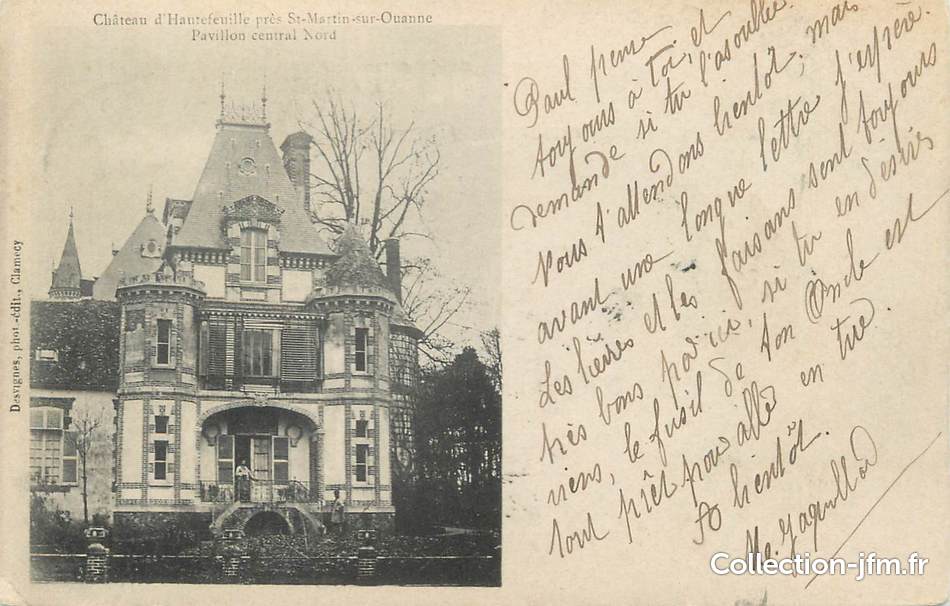 Château d'Hautefeuille près St-Martin-sur-Ouanne
Pavillon central Nord
Desvignes, phot.-édit., Clamecy
Paul pense
toujours à toi, et
demande si tu l'as oublié
nous t'attendons bientôt, mais
avant une longue lettre j'espère.
Les lièvres et les faisans sont toujours
très bons par ici, si tu en désires
viens, le fusil de ton Oncle est
tout prêt pour aller en tué.
A bientôt.
Collection-jfm.fr